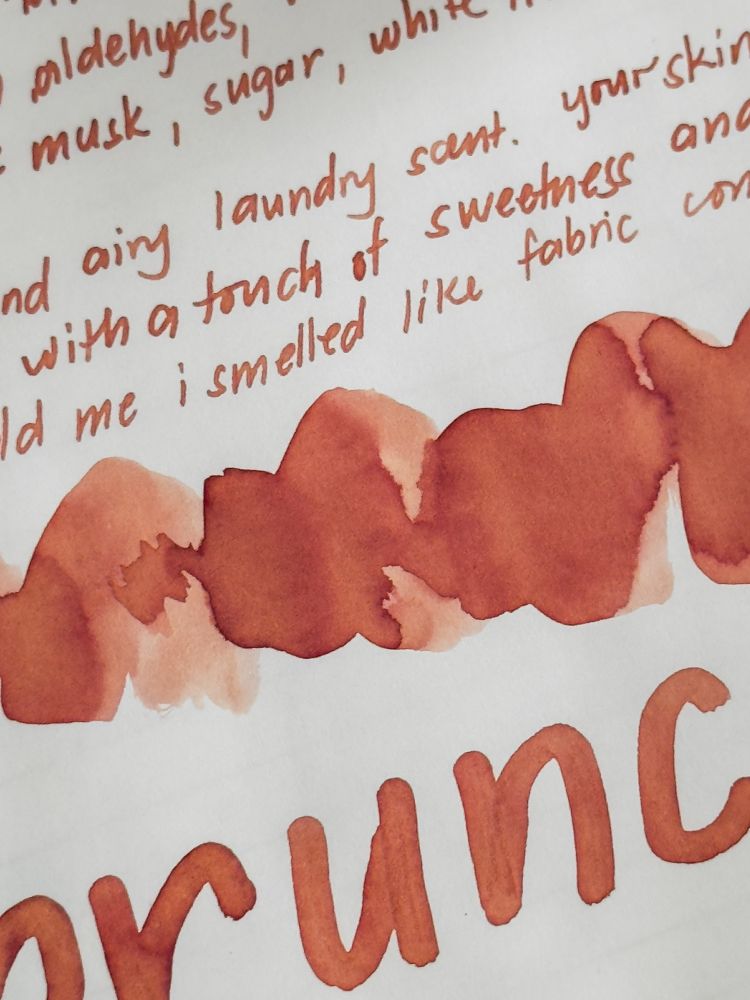 aldehydes,
musk, sugar, white
and airy laundry scent. your skin
with a touch of sweetness and
told me i smelled like fabric con
runc